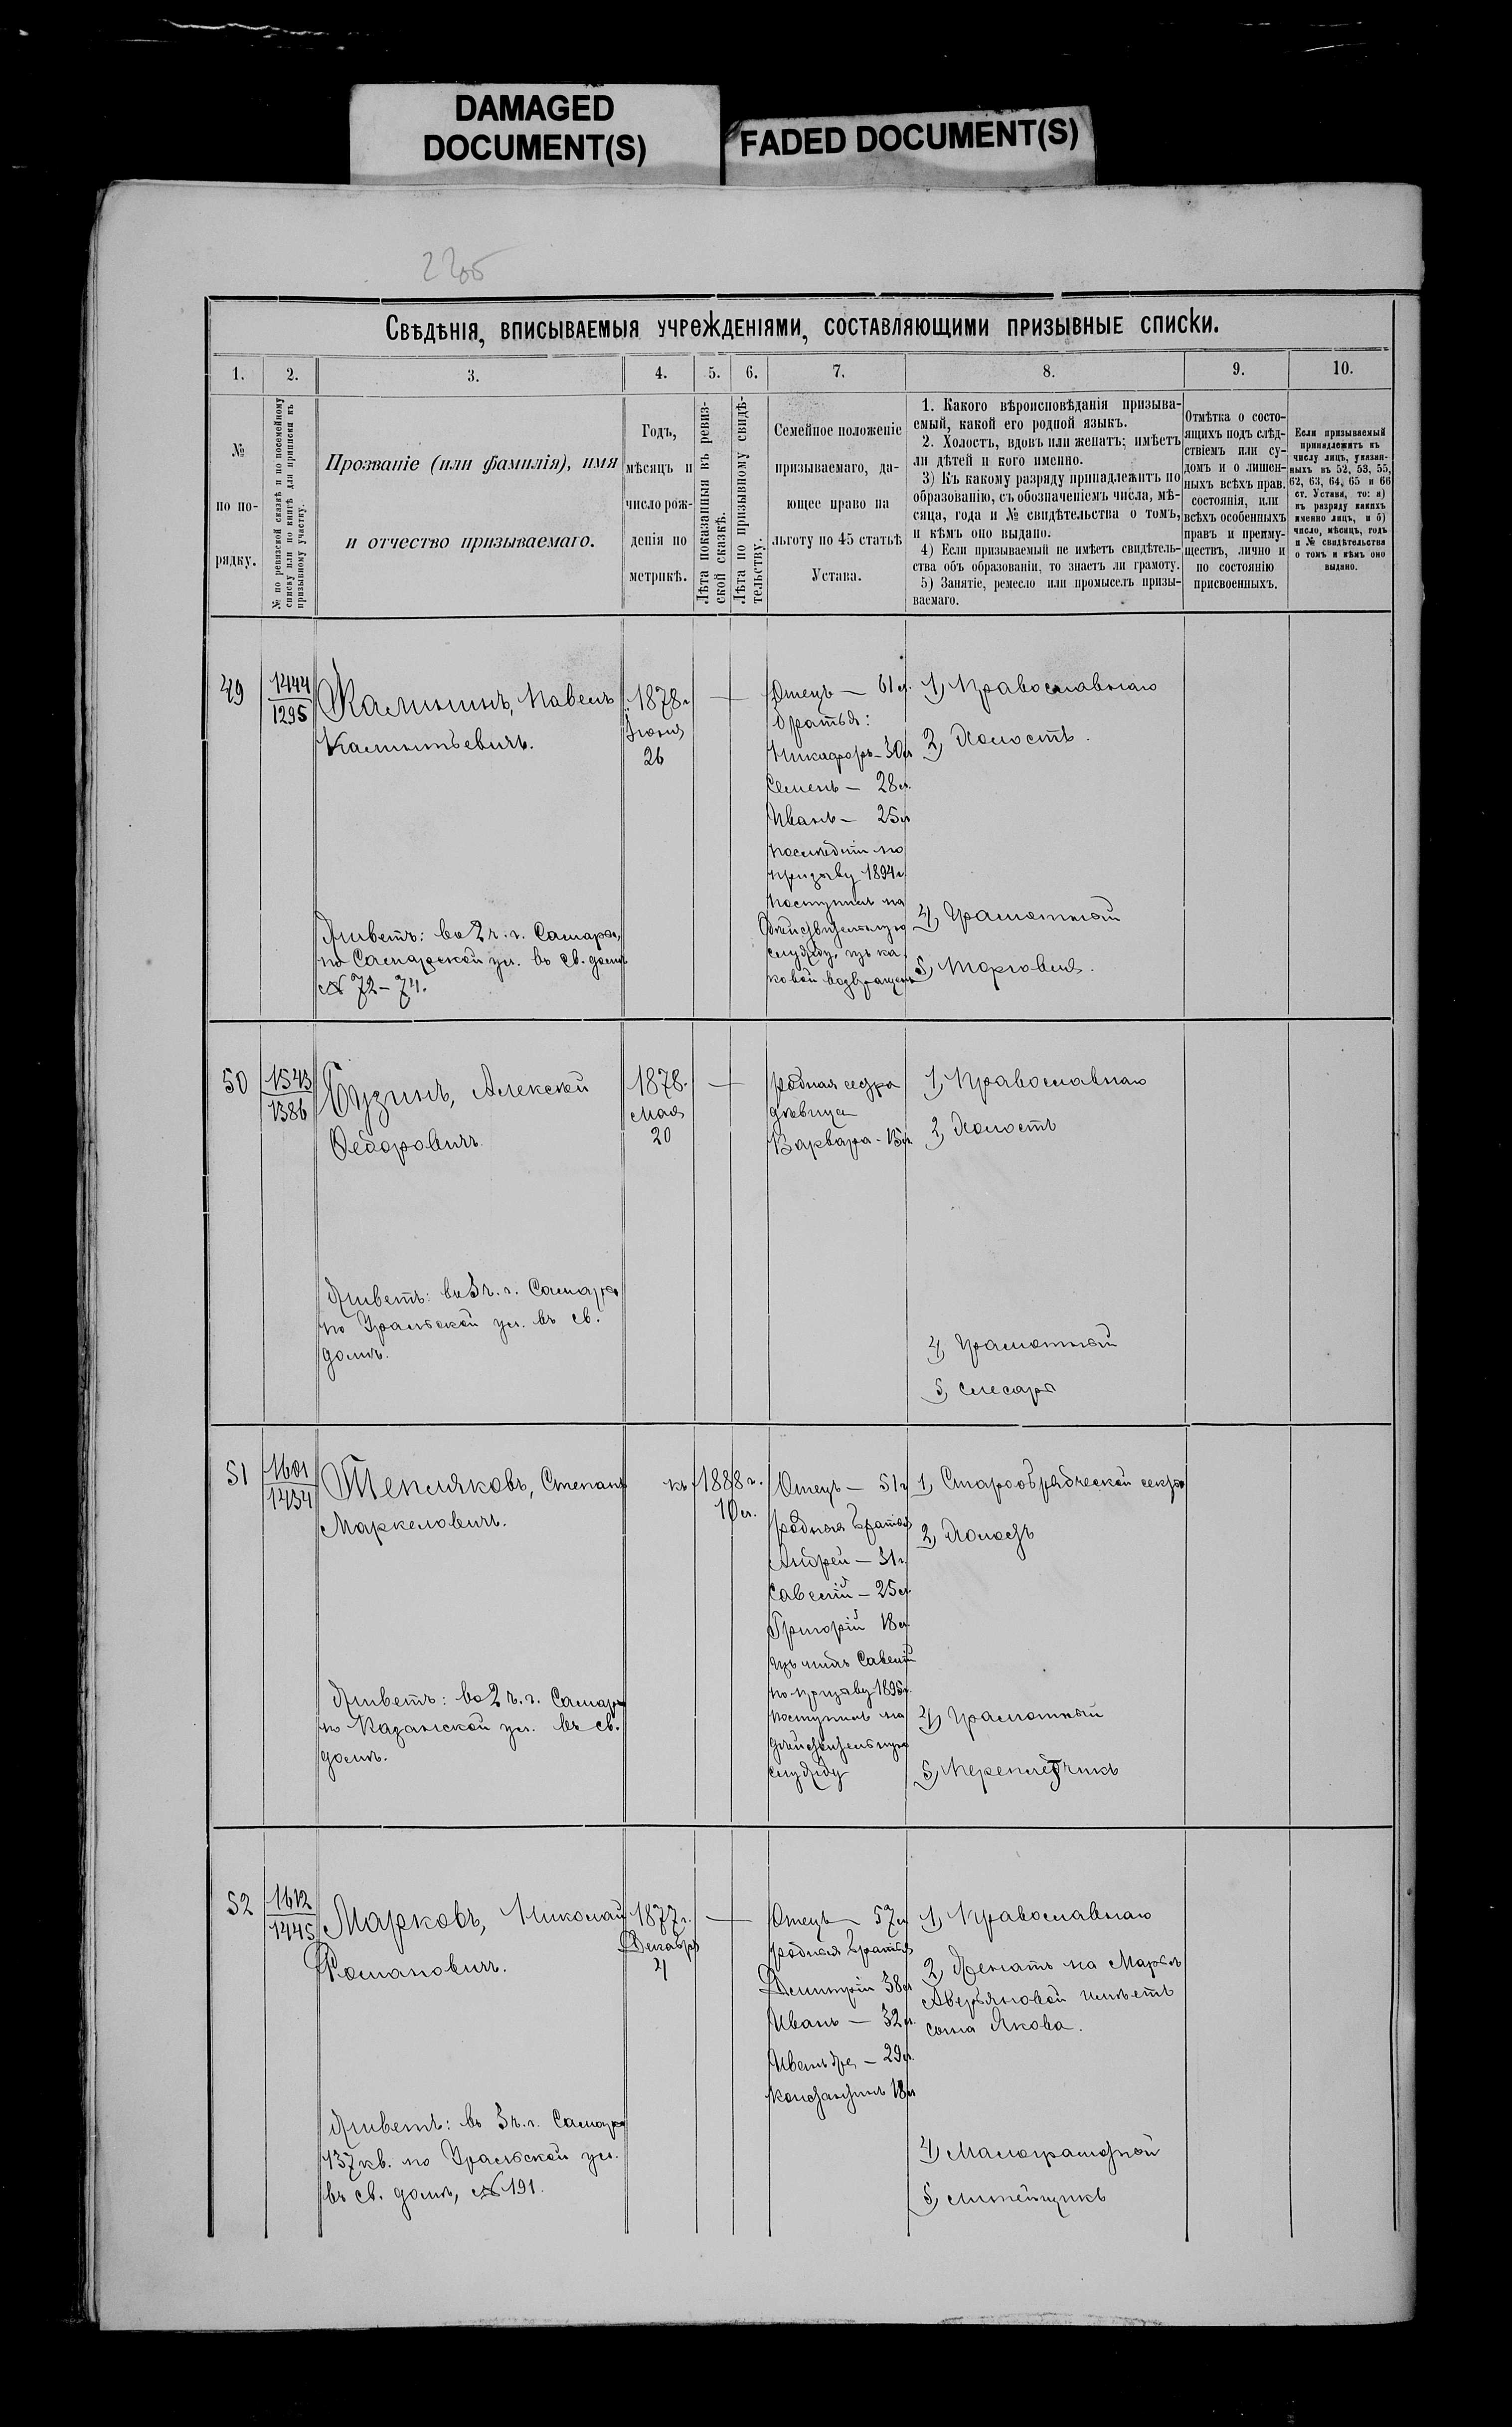 DAMAGED
DOCUMENT(S)
FADED DOCUMENT(S)
Свѣдѣнія, вписываемыя учрежденіями, составляющими призывные списки.
1. 2. 3. 4. 5. 6. 7. 8. 9. 10.
№
по по-
рядку.
№ по ревизской сказкѣ и по посемейному
списку или по книгѣ для приписки къ
призывному участку.
Прозваніе (или фамилія), имя
и отчество призываемаго.
Годъ,
мѣсяцъ и
число рож-
денія по
метрикѣ.
Лѣта показанныя въ ревиз-
ской сказкѣ.
Лѣта по призывному свидѣ-
тельству.
Семейное положеніе
призываемаго, да-
ющее право на
льготу по 45 статьѣ
Устава.
1. Какого вѣроисповѣданія призыва-
емый, какой его родной языкъ.
2. Холостъ, вдовъ или женатъ; имѣетъ
ли дѣтей и кого именно.
3) Къ какому разряду принадлежитъ по
образованію, съ обозначеніемъ числа, мѣ-
сяца, года и № свидѣтельства о томъ,
и кѣмъ оно выдано.
4) Если призываемый не имѣетъ свидѣтель-
ства объ образованіи, то знаетъ ли грамоту.
5) Занятіе, ремесло или промыселъ призы-
ваемаго.
Отмѣтка о состо-
ящихъ подъ слѣд-
ствіемъ или су-
домъ и о лишен-
ныхъ всѣхъ прав.
состоянія, или
всѣхъ особенныхъ
правъ и преиму-
ществъ, лично и
по состоянію
присвоенныхъ.
Если призываемый
принадлежитъ къ
числу лицъ, указан-
ныхъ въ 52, 53, 55,
62, 63, 64, 65 и 66
ст. Устава, то: а)
къ разряду какихъ
именно лицъ, и б)
число, мѣсяцъ, годъ
и № свидѣтельства
о томъ и кѣмъ оно
выдано.
49
1444
1295
Калининъ, Павелъ
Калинтьевичъ.
Живетъ: во 2 ч. г. Самары,
по Самарской ул. въ св. домѣ
№ 72-74.
1878 г.
Іюня
26
—
Отецъ — 61 л.
братья:
Никифоръ — 30 л.
Семенъ — 28 л.
Иванъ — 25 л.
послѣдній по
призыву 1894 г.
поступилъ на
дѣйствительную
службу, изъ ка-
ковой возвращенъ
1) Православнаго
2) Холостъ.
4) Грамотный
5) Торговля.
50
1543
1386
Бузинъ, Алексѣй
Федоровичъ.
Живетъ: въ 3 ч. г. Самары
по Уральской ул. въ св.
домѣ.
1878
Мая
20
—
родная сестра
дѣвица
Варвара - 15 л.
1) Православнаго
2) Холостъ
4) Грамотный
5) слесарь
51
1601
1434
Тепляковъ, Степанъ
Маркеловичъ.
Живетъ: во 2 ч. г. Самары
по Казанской ул. въ св.
домѣ.
къ 1888 г.
10 л.
Отецъ — 51 г.
родныя братья
Андрей — 31 г.
Савелій — 25 л.
Григорій 18 л.
изъ нихъ Савелій
по призыву 1895 г.
поступилъ на
дѣйствительную
службу
1) Старообрядческой секты
2) Холостъ
4) Грамотный
5) Переплетчикъ
52
1612
1445
Марковъ, Николай
Романовичъ.
Живетъ: въ 3 ч. г. Самары
137 кв. по Уральской ул.
въ св. домѣ, № 191.
1877 г.
Декабря
4
—
Отецъ — 57 л.
родныя братья
Дмитрій 38 л.
Иванъ — 32 л.
Иванъ же — 29 л.
Константинъ 18 л.
1) Православнаго
2) Женатъ на Марьѣ
Аверьяновой имѣетъ
сына Якова.
4) Малограмотной
5) литейщикъ